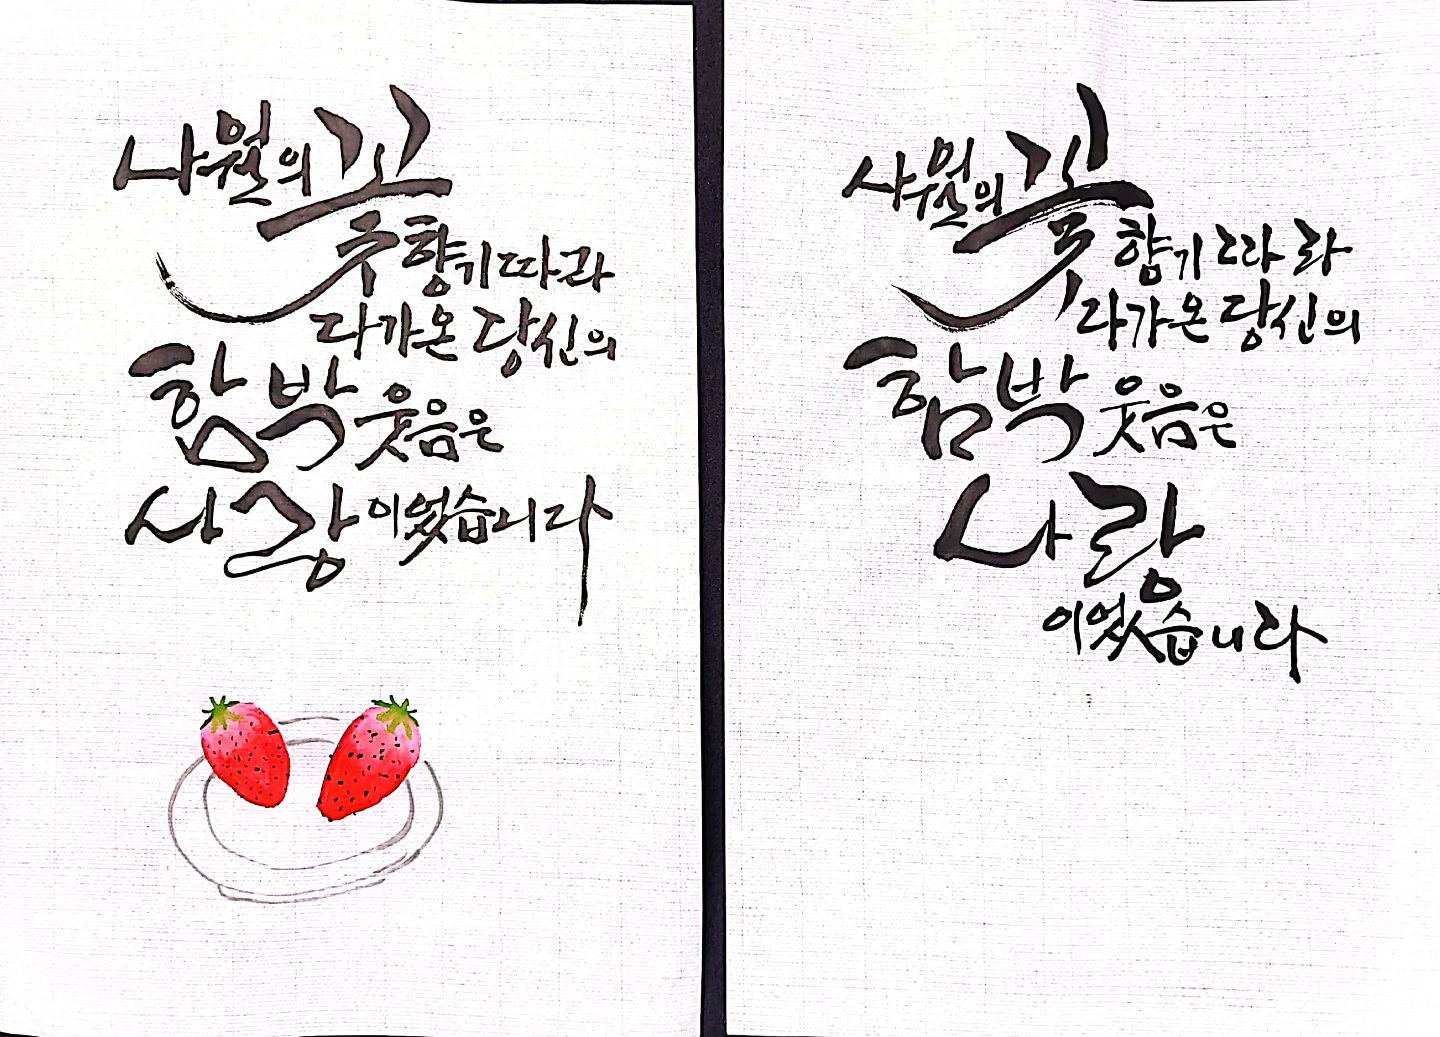 사월의 꽃
향기따라
다가온 당신의
함박 웃음은
사랑이었습니다
사월의 꽃
향기 따라
다가온 당신의
함박 웃음은
사랑
이었습니다